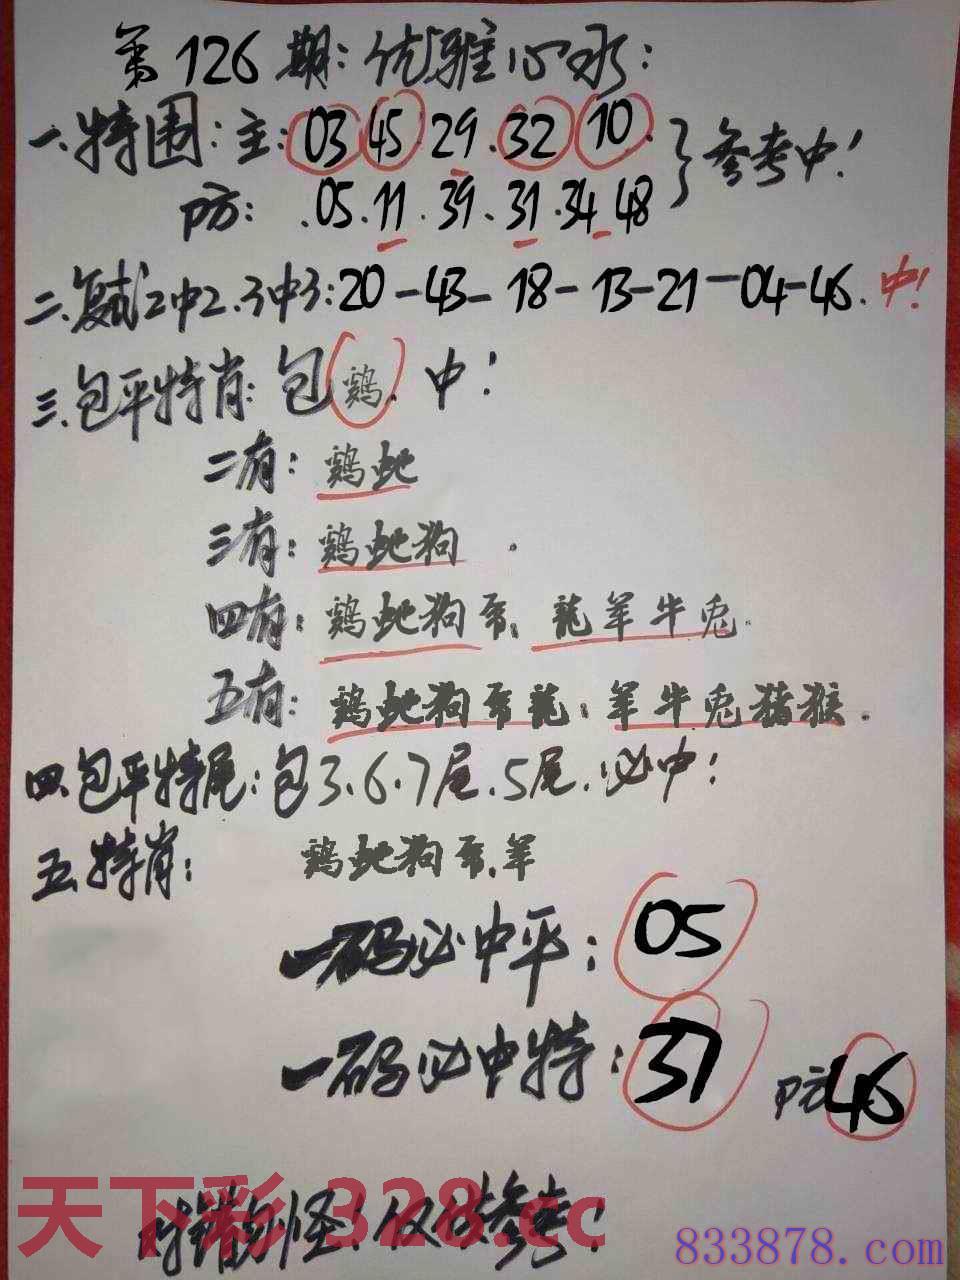 第126期:优雅心水:
一.特围:主:03 45 29.32 10.
防:.05.11.39.31.34.48
参考中!
二.复式2中2.3中3:20-43-18-13-21-04-46.中!
三.包平特肖:包鸡.中!
二有:鸡蛇
三有:鸡蛇狗.
四有:鸡蛇狗马.龍羊牛兎.
五有:鸡蛇狗马龍:羊牛兎猪猴.
四.包平特尾:包3.6.7尾.5尾.必中!
五.特肖:鸡蛇狗马.羊
一码必中平:05
一码必中特:37 防46
对错勿怪!仅供参考!
天下彩 328.cc
833878.com